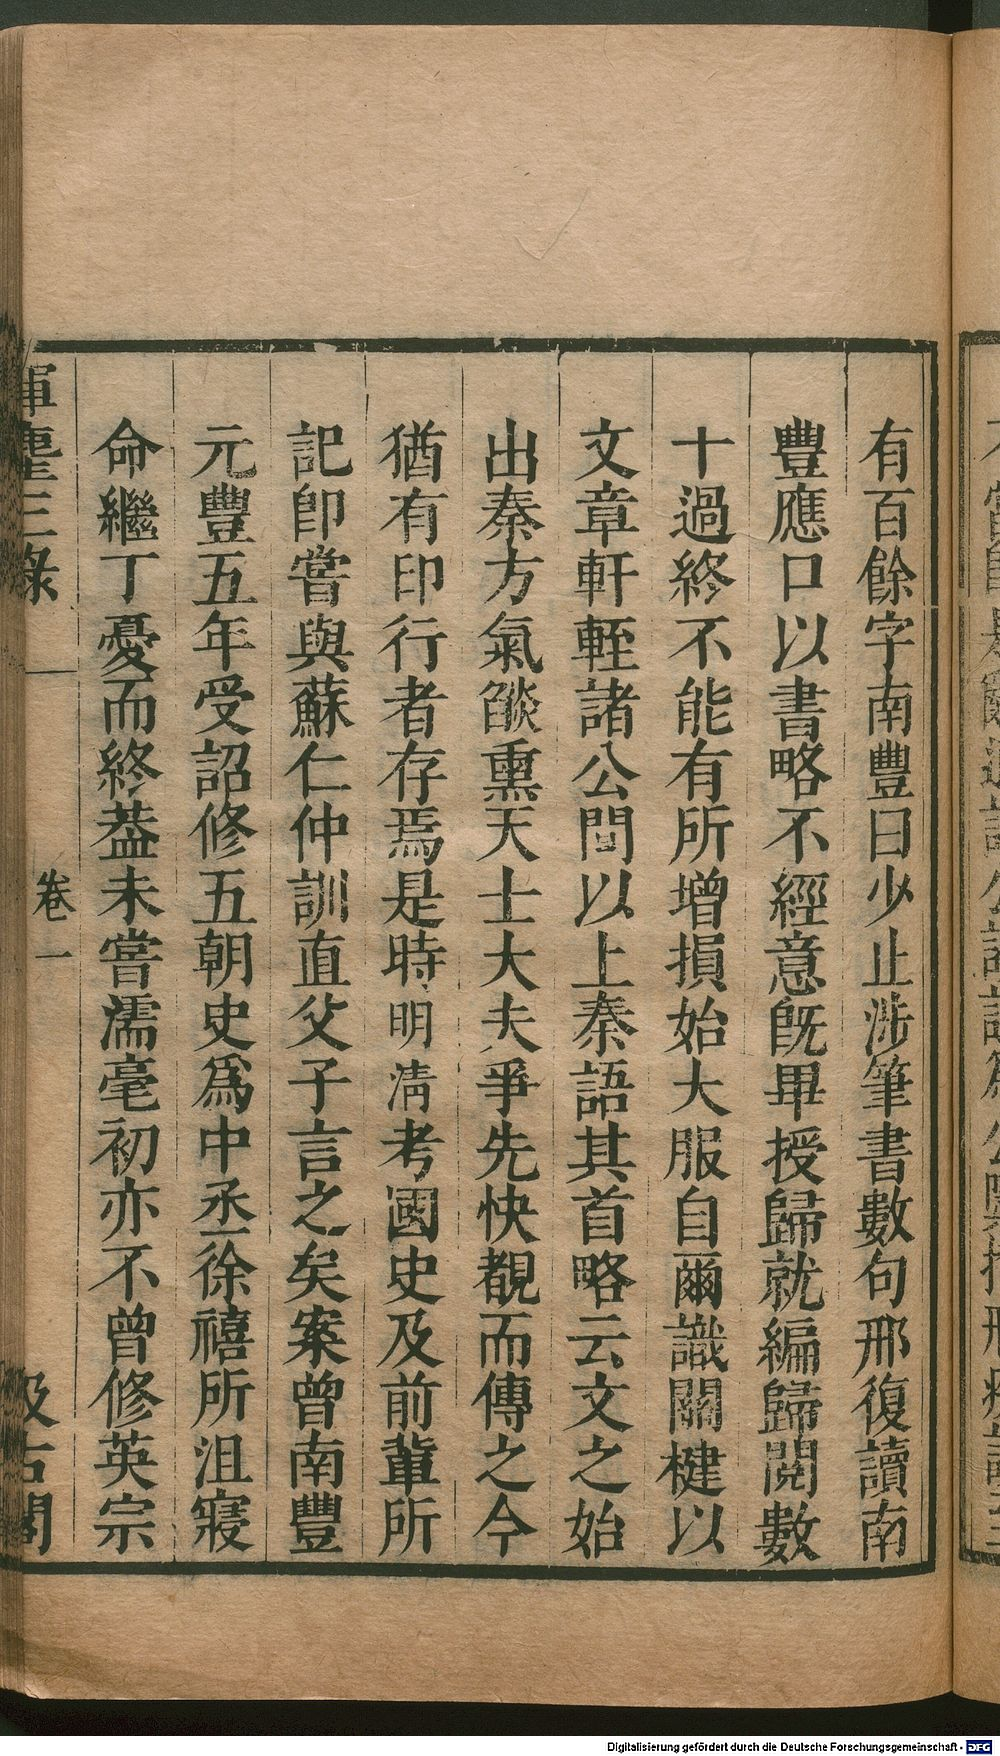 有百餘字南豐曰少止涉筆書數句邢復讀南
豐應口以書略不經意旣畢授歸就編歸閱數
十過終不能有所增損始大服自爾識關楗以
文章軒輊諸公間以上秦語其首略云文之始
出秦方氣燄熏天士大夫爭先快覩而傳之今
猶有印行者存焉是時明淸考國史及前輩所
記卽嘗與蘇仁仲訓直父子言之矣案曾南豐
元豐五年受詔修五朝史爲中丞徐禧所沮寢
命繼丁憂而終葢未嘗濡毫初亦不曾修英宗
揮麈三錄
卷一
汲古閣
Digitalisierung gefördert durch die Deutsche Forschungsgemeinschaft - DFG